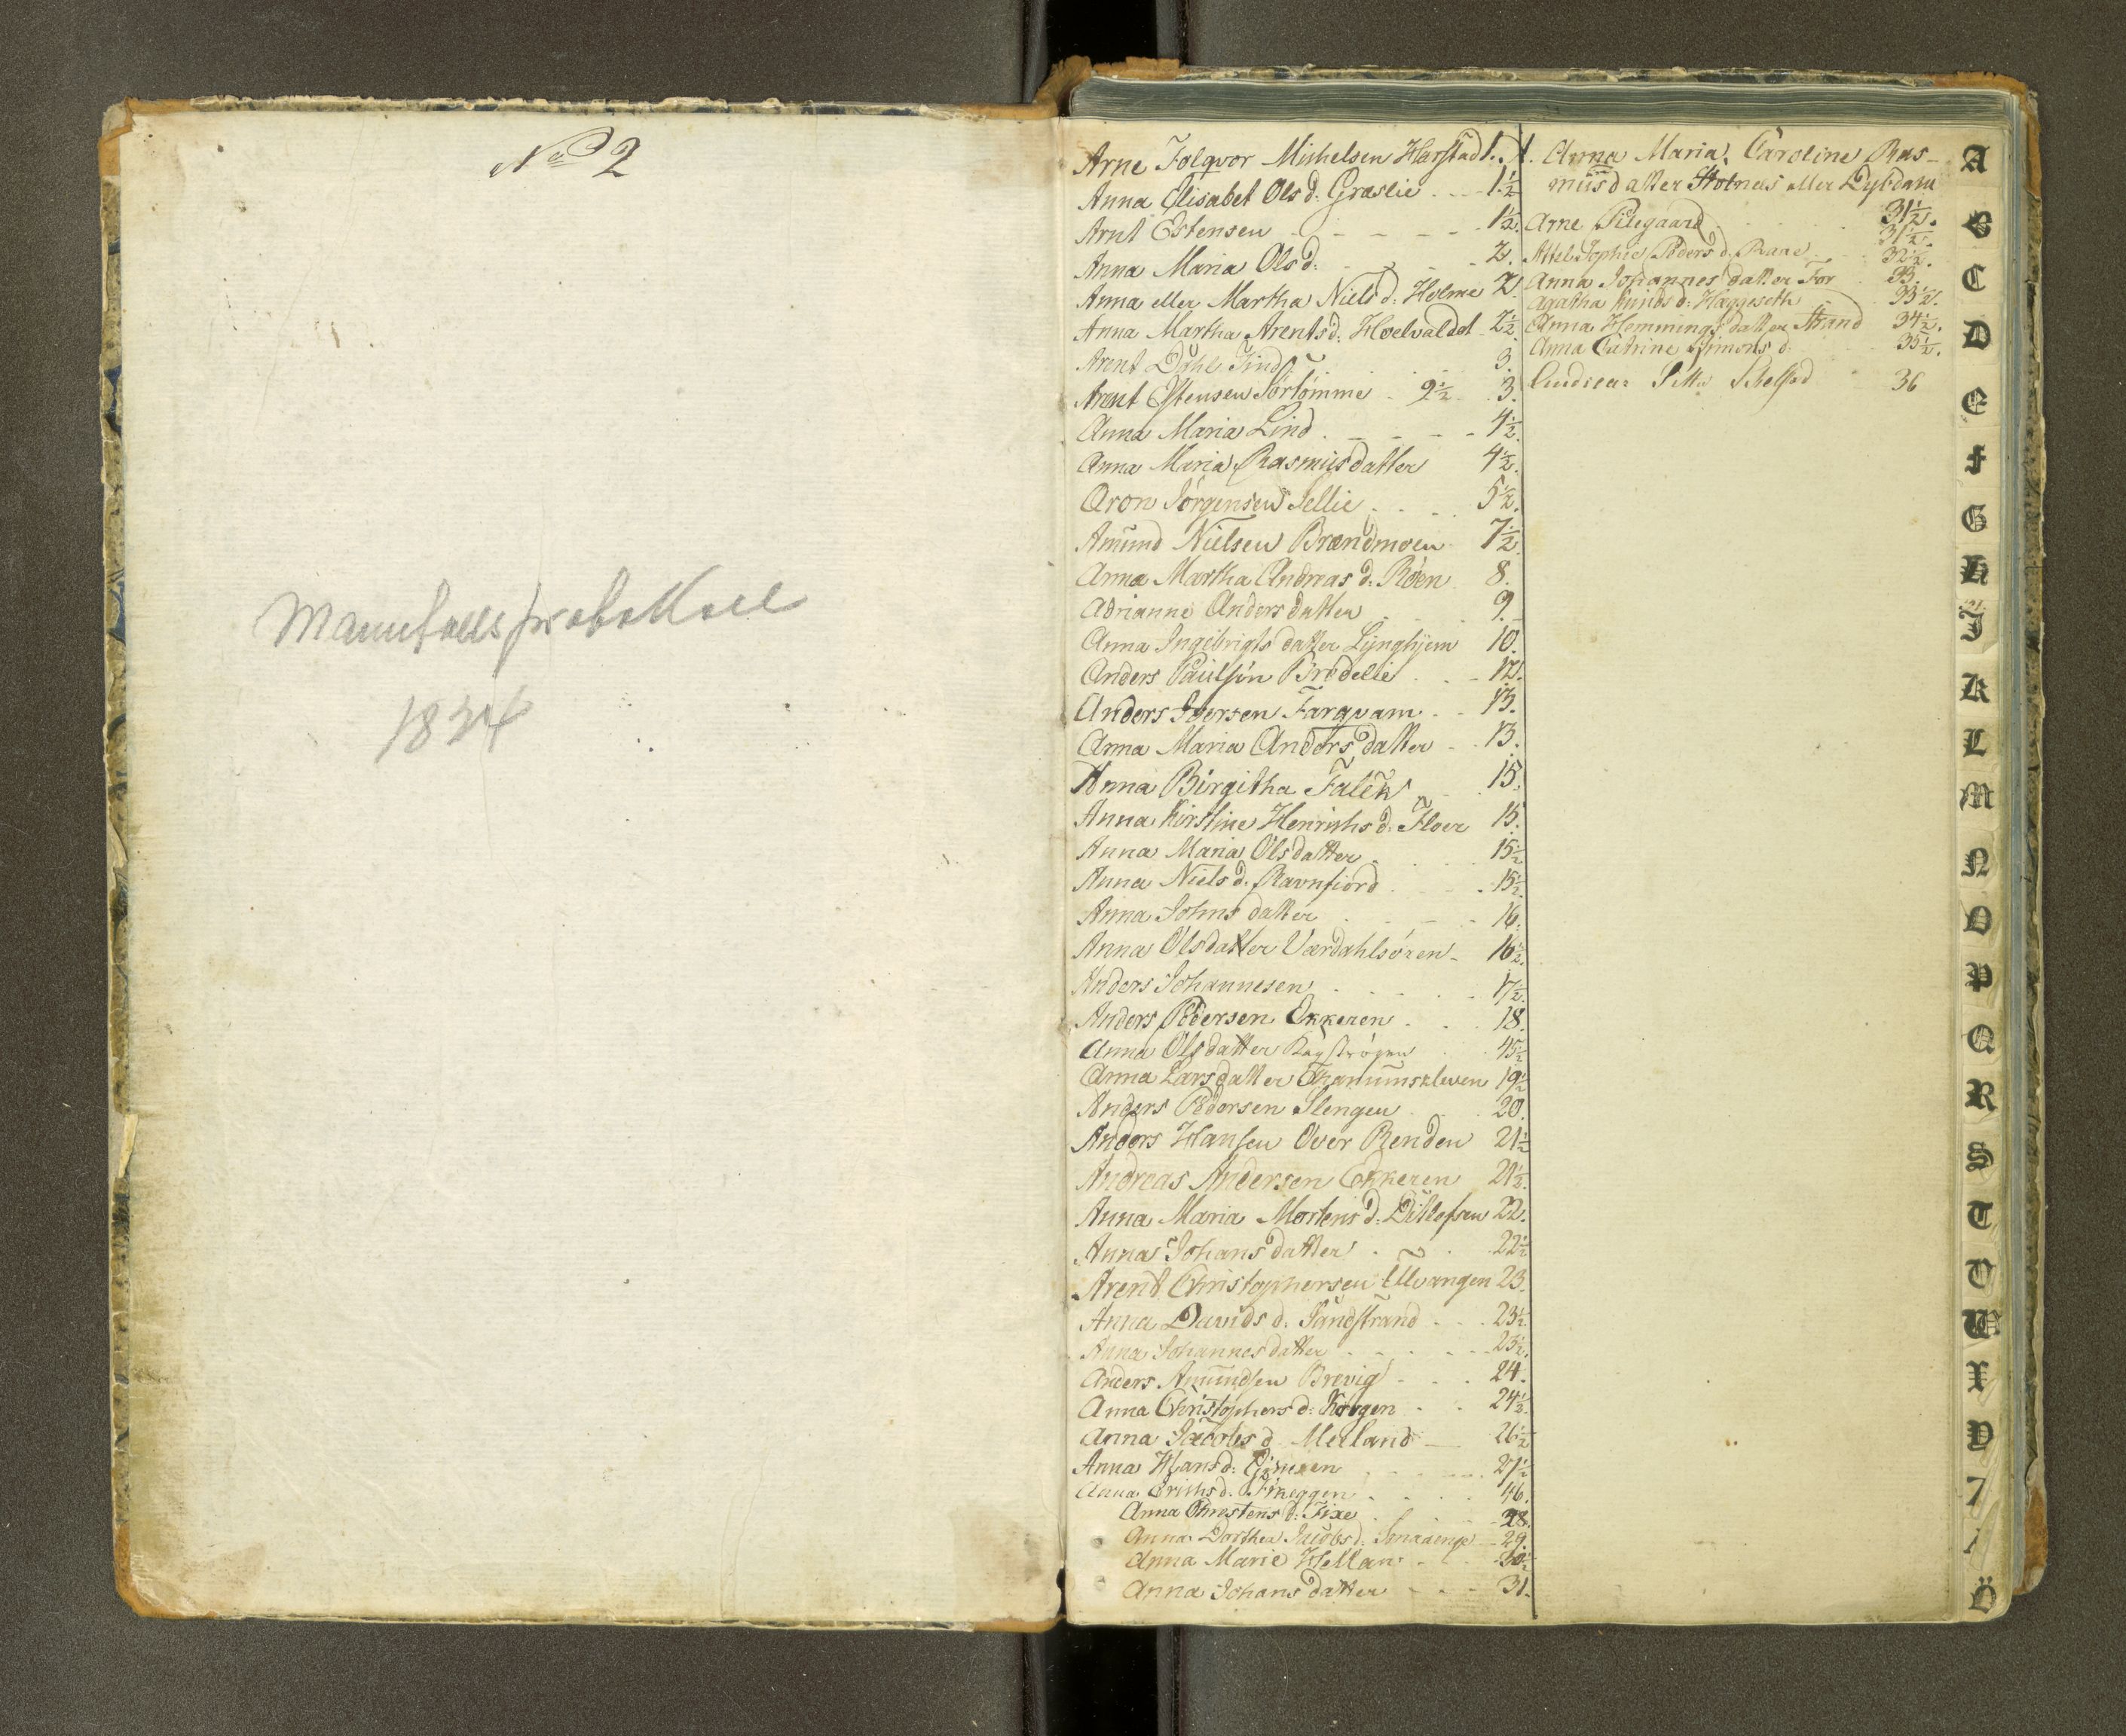 No 2
Manntalls protokoll
1834
Arne Folqvor Michelsen Harstad 1.
Anna Elisabet Ols d: Græslie 1½
Arnt Estensen 1½.
Anna Maria Ols d: 2.
Anna eller Martha Niels d: Holme 2
Anna Martha Arents d: Hoelvaldet 2½
Arent Dahl Lind 3.
Arent Estensen Sørtømme 9½ 3.
Anna Maria Lind 4½.
Anna Maria Rasmusdatter 4½.
Aron Jörgensen Sellie 5½.
Amund Nielsen Brændmoen 7½
Anna Martha Andreas d: Röen 8.
Adrianne Andersdatter 9.
Anna Ingebrigts datter Lynghjem 10.
Anders Paulsen Brödelie 12.
Anders Iversen Farqvam 13.
Anna Maria Anders datter 13.
Anna Birgitha Falck 15.
Anna Kirstine Henrichs d: Floer 15.
Anna Maria Olsdatter 15½
Anna Niels d: Ravnfiord 15½
Anna Johns datter 16.
Anna Olsdatter Værdahlsören 16½.
Anders Johannesen 17½.
Anders Pedersen Ekkeren 18.
Anna Olsdatter 45½
Anna Larsdatter 19½
Anders Pedersen Slengen 20.
Anders Hansen Over Renden 21½
Andreas Andersen Ekkeren 21½.
Anna Maria Mortens d: Ditlefsen 22.
Anna Johans datter 22½
Arent Christophersen Elvangen 23.
Anna Davids d: Sandstrand 23½
Anna Johannesdatter 23½.
Anders Amundsen Brevig 24.
Anna Christophers d: Krogen 24½.
Anna Jacobs d Meeland 26½
Anna Hans d: 27½
Anna Erichs d: 46.
Anna Christens d: Fixe 28.
Anna Dorthea Jacobs d: 29.
Anna Marie Hellan 30½
Anna Johans datter 31.
1. Anna Maria, Caroline Ras-
musdatter Holnes eller Dybdahl
31½.
Arne Pilegaard 31½.
Sophie Peders d: 32½.
Anna Johannes datter For 33.
Agatha d: Haggeseth 33½.
Anna Hemmings datter Strand 34½.
Anna Catrine Simons d: 35½.
36
A
C
D
E
F
G
H
I
K
L
M
N
O
P
Q
R
S
T
U
W
X
Y
Z
Ö